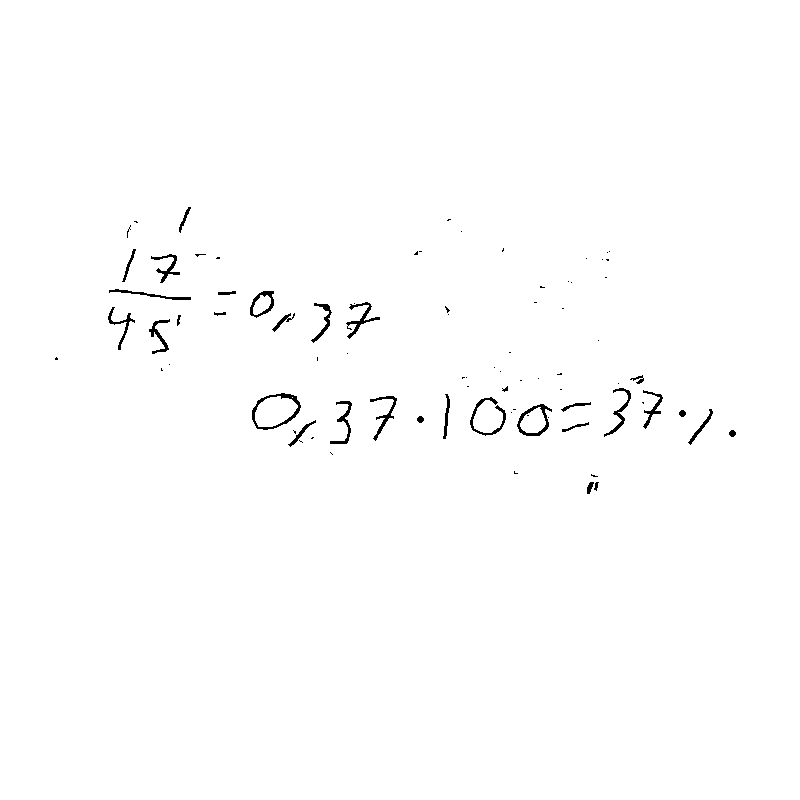 17/45 = 0,37
0,37 · 100 = 37 %